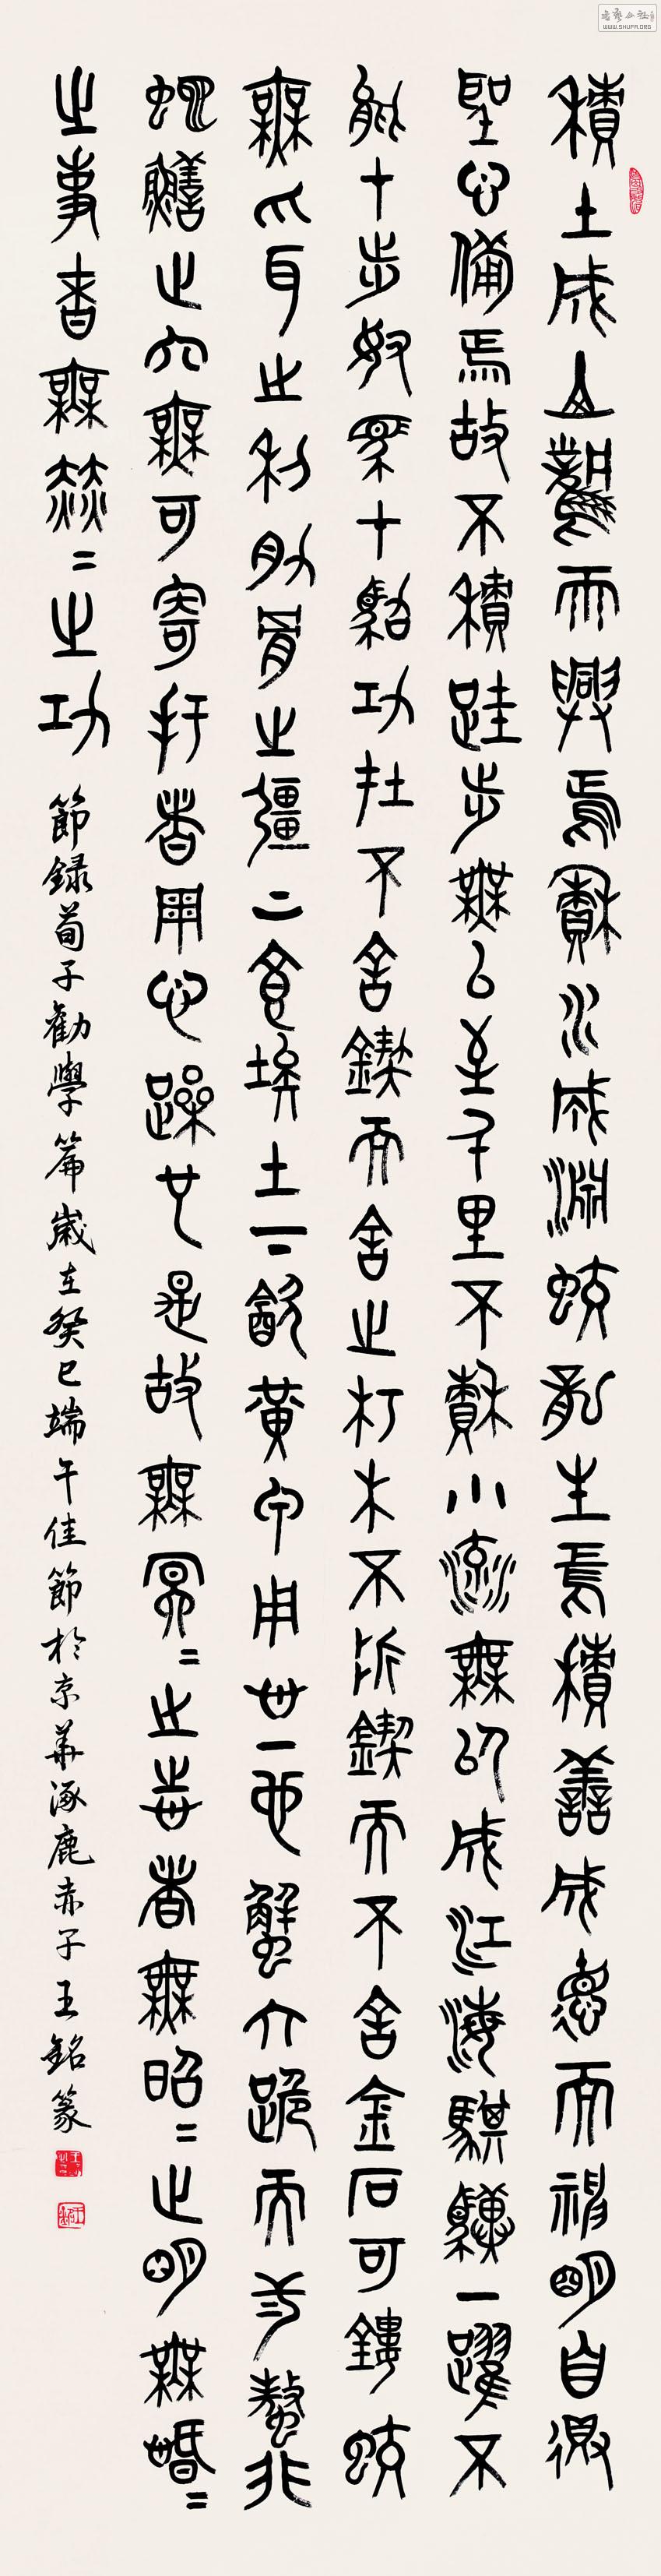 積土成山風雨興焉積水成淵蛟龍生焉積善成悳而神明自得
聖心備焉故不積跬步無以至千里不積小流無以成江海騏驥一躍不
能十步駑馬十駕功在不舍鍥而舍之朽木不折鍥而不舍金石可鏤蚓
無爪牙之利筋骨之彊上食埃土下飲黃泉用心一也蟹六跪而二螯非
蛇鱔之穴無可寄托者用心躁也是故無冥〻之志者無昭〻之明無惛〻
之事者無赫〻之功
節録荀子勸學篇歲在癸巳端午佳節於京華涿鹿赤子王銘篆
WWW.SHUFA.ORG